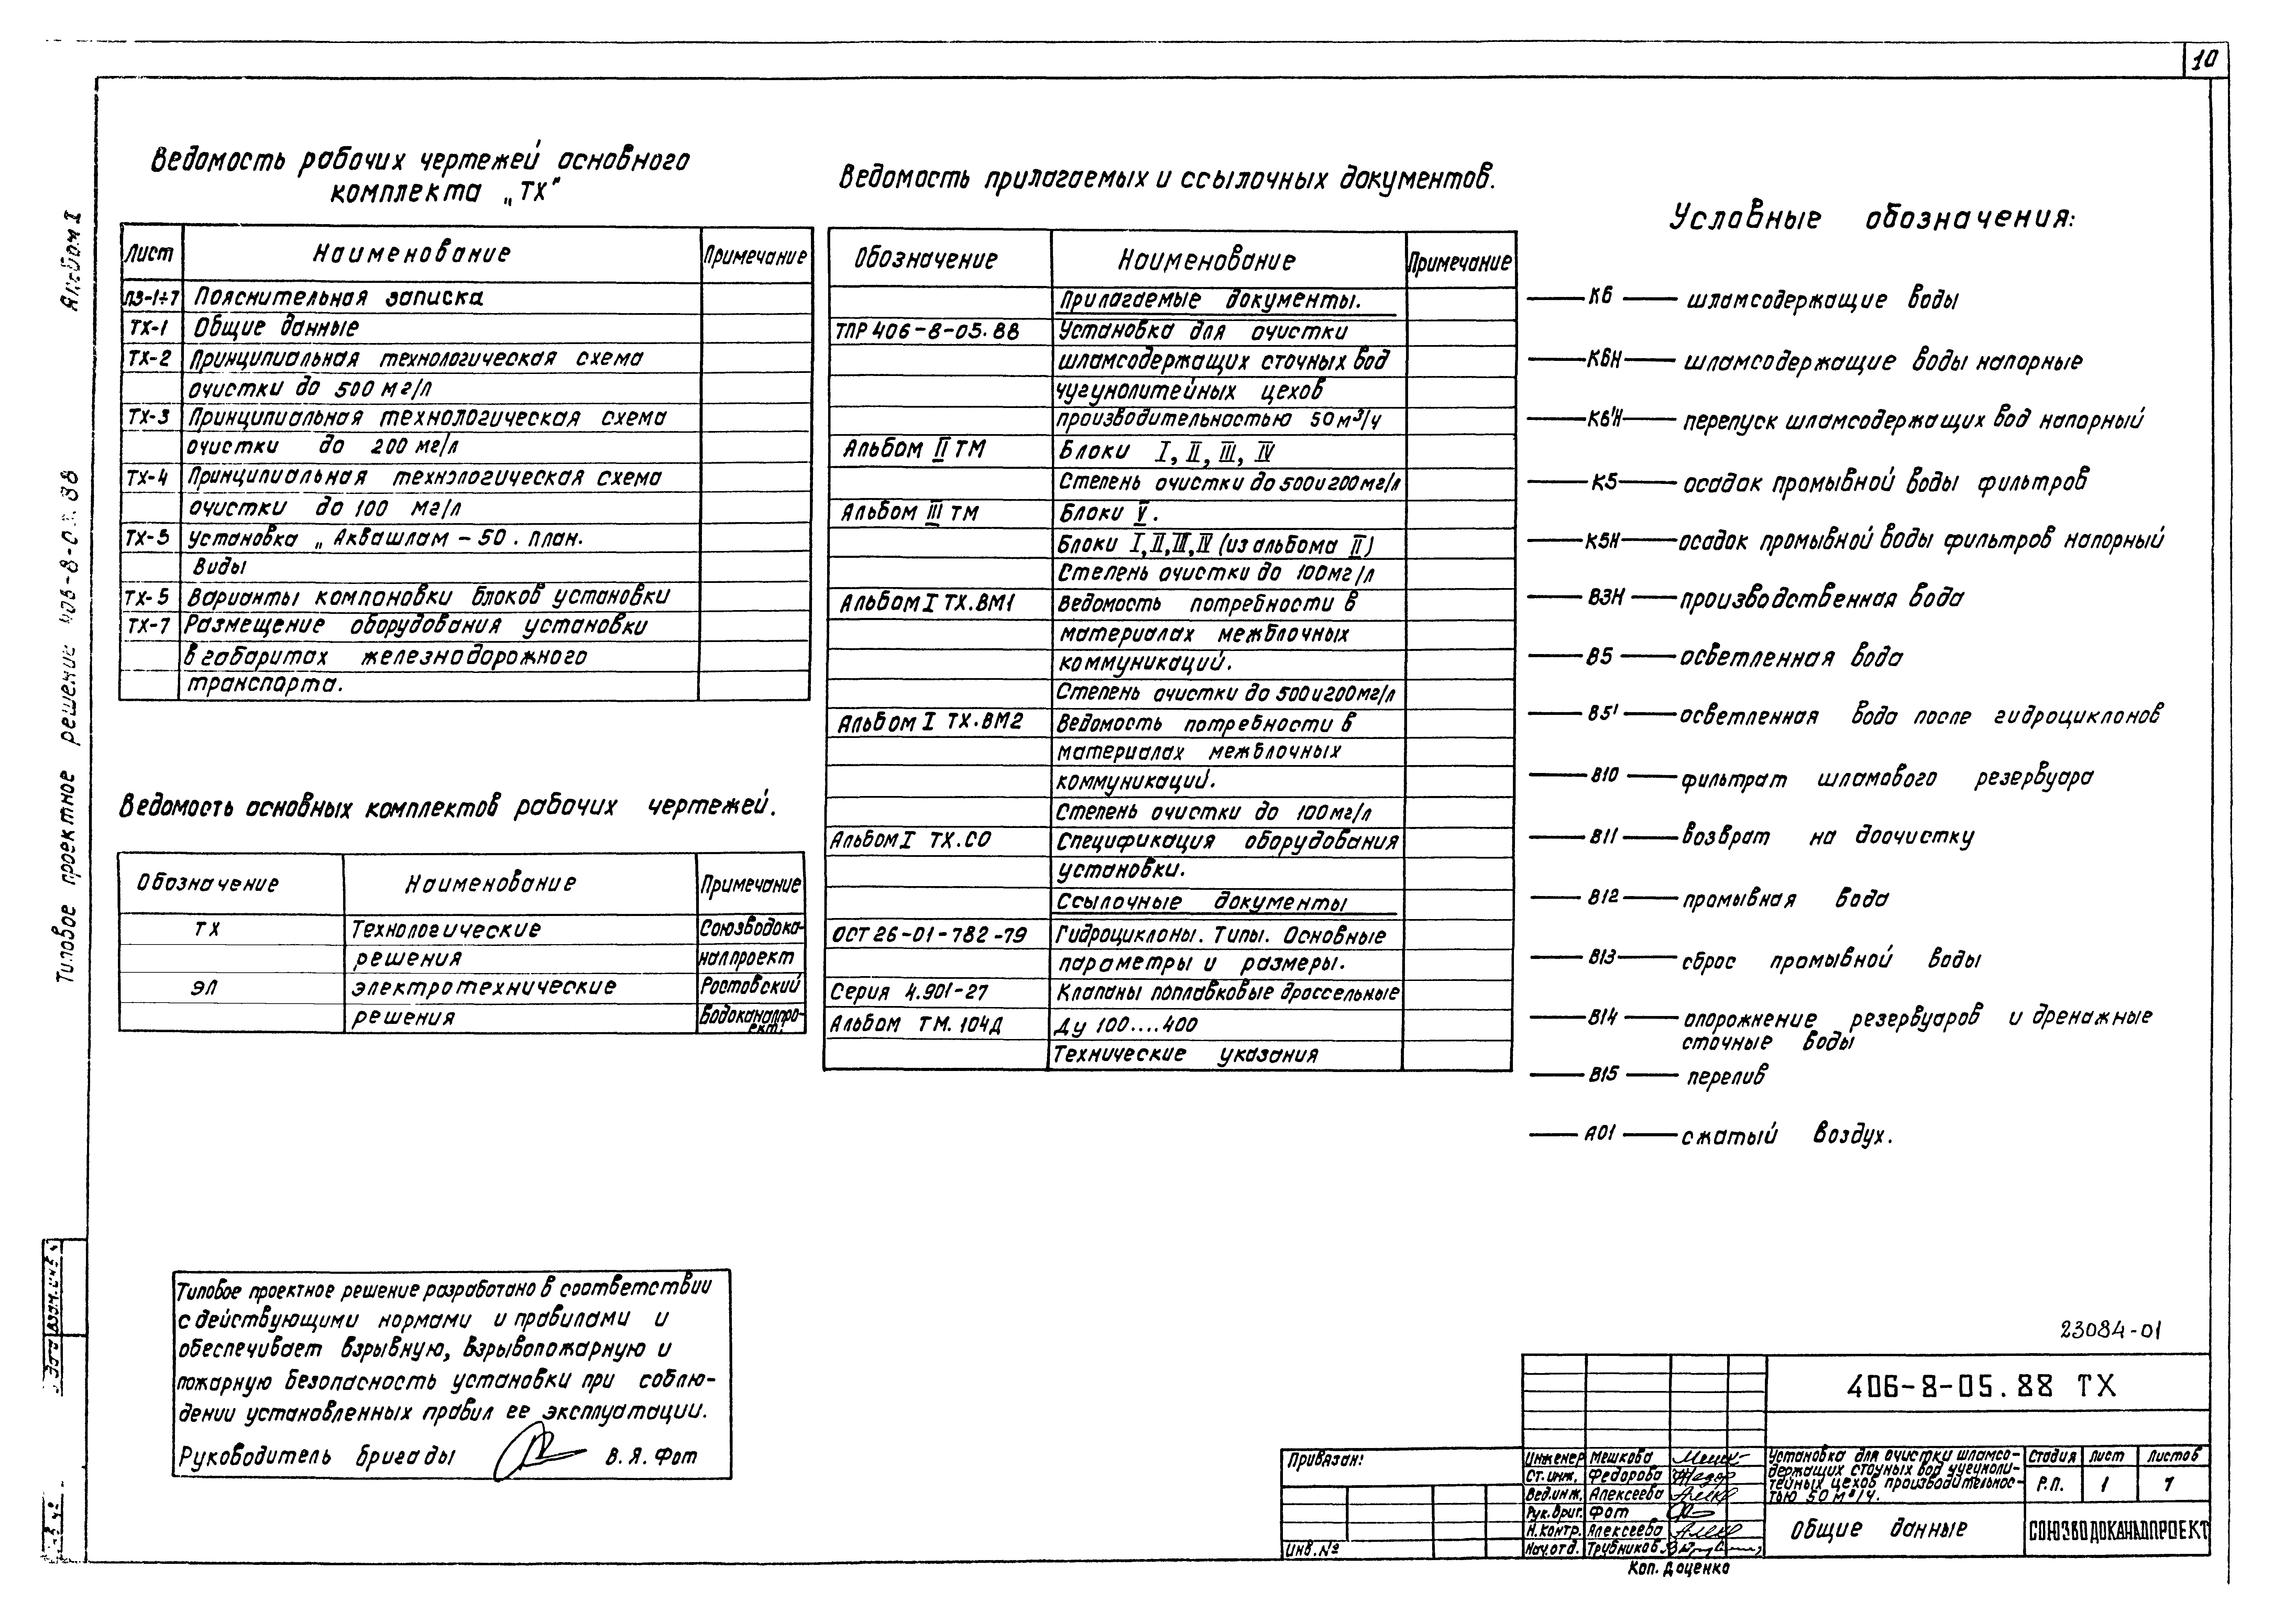 10
Альбом I
Типовое проектное решение
Ведомость рабочих чертежей основного
комплекта „ТХ"
Лист Наименование Примечание
ПЗ-1÷7 Пояснительная записка
ТХ-1 Общие данные
ТХ-2 Принципиальная технологическая схема
очистки до 500 мг/л
ТХ-3 Принципиальная технологическая схема
очистки до 200 мг/л
ТХ-4 Принципиальная технологическая схема
очистки до 100 мг/л
ТХ-5 Установка „ Аквашлам – 50 . План.
Виды
ТХ-5 Варианты компоновки блоков установки
ТХ-7 Размещение оборудования установки
в габаритах железнодорожного
транспорта.
Ведомость основных комплектов рабочих чертежей.
Обозначение Наименование Примечание
ТХ Технологические Союзводока-
решения налпроект
ЭЛ Электротехнические Ростовский
решения Водоканалпро-
ект.
Ведомость прилагаемых и ссылочных документов.
Обозначение Наименование Примечание
Прилагаемые документы.
ТПР 406-8-05.88 Установка для очистки
шламсодержащих сточных вод
чугунолитейных цехов
производительностью 50 м³/ч
Альбом II ТМ Блоки I, II, III, IV
Степень очистки до 500 и 200 мг/л
Альбом III ТМ Блоки V.
Блоки I, II, III, IV (из альбома II)
Степень очистки до 100 мг/л
Альбом I ТХ.ВМ1 Ведомость потребности в
материалах межблочных
коммуникаций.
Степень очистки до 500 и 200 мг/л
Альбом I ТХ.ВМ2 Ведомость потребности в
материалах межблочных
коммуникаций.
Степень очистки до 100 мг/л
Альбом I ТХ.СО Спецификация оборудования
установки.
Ссылочные документы
ОСТ 26-01-782-79 Гидроциклоны. Типы. Основные
параметры и размеры.
Серия 4.901-27 Клапаны поплавковые дроссельные
Альбом ТМ.104Д Ду 100....400
Технические указания
Условные обозначения:
К6 шламсодержащие воды
К6Н шламсодержащие воды напорные
К6'Н перепуск шламсодержащих вод напорный
К5 осадок промывной воды фильтров
К5Н осадок промывной воды фильтров напорный
В3Н производственная вода
В5 осветленная вода
В5' осветленная вода после гидроциклонов
В10 фильтрат шламового резервуара
В11 возврат на доочистку
В12 промывная вода
В13 сброс промывной воды
В14 опорожнение резервуаров и дренажные
сточные воды
В15 перелив
А01 сжатый воздух.
Типовое проектное решение разработано в соответствии
с действующими нормами и правилами и
обеспечивает взрывную, взрывопожарную и
пожарную безопасность установки при соблю-
дении установленных правил ее эксплуатации.
Руководитель бригады В. Я. Фот
23084-01
406-8-05.88 ТХ
Привязан:
Инв. №
Инженер Мешкова
Ст. инж. Федорова
Вед.инж. Алексеева
Рук.бриг. Фот
Н.контр. Алексеева
Нач.отд. Трубников
Установка для очистки шламсо-
держащих сточных вод чугуноли-
тейных цехов производительнос-
тью 50 м³/ч.
Стадия Лист Листов
Р.П. 1 7
Общие данные
СОЮЗВОДОКАНАЛПРОЕКТ
Коп. Доценко